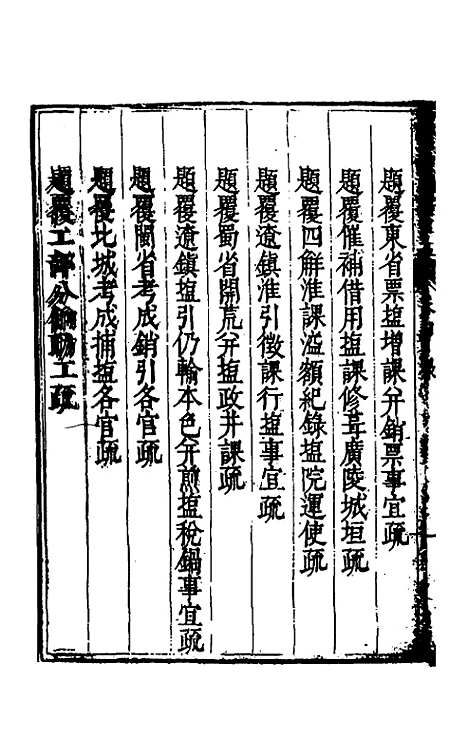 題覆東省票塩增課并銷票事宜疏
題覆催補借用塩課修葺廣陵城垣疏
題覆四解淮課溢額紀錄塩院運使疏
題覆遼鎮淮引徵課行塩事宜疏
題覆蜀省開荒并塩政井課疏
題覆遼鎮塩引仍輸本色并煎塩稅鍋事宜疏
題覆閩省考成銷引各官疏
題覆比城考成捕塩各官疏
題覆工部分銷助工疏